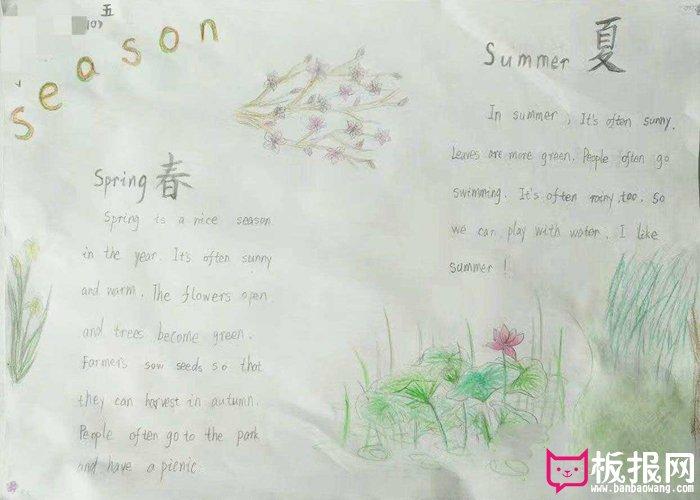 五
(10)
season
Summer 夏
In summer, It's often sunny.
Leaves are more green. People often go
swimming. It's often rainy, too. So
we can play with water. I like
summer!
Spring 春
Spring is a nice season
in the year. It's often sunny
and warm. The flowers open
and trees become green.
Farmers sow seeds so that
they can harvest in autumn.
People often go to the park
and have a picnic
板报网
www.banbaowang.com